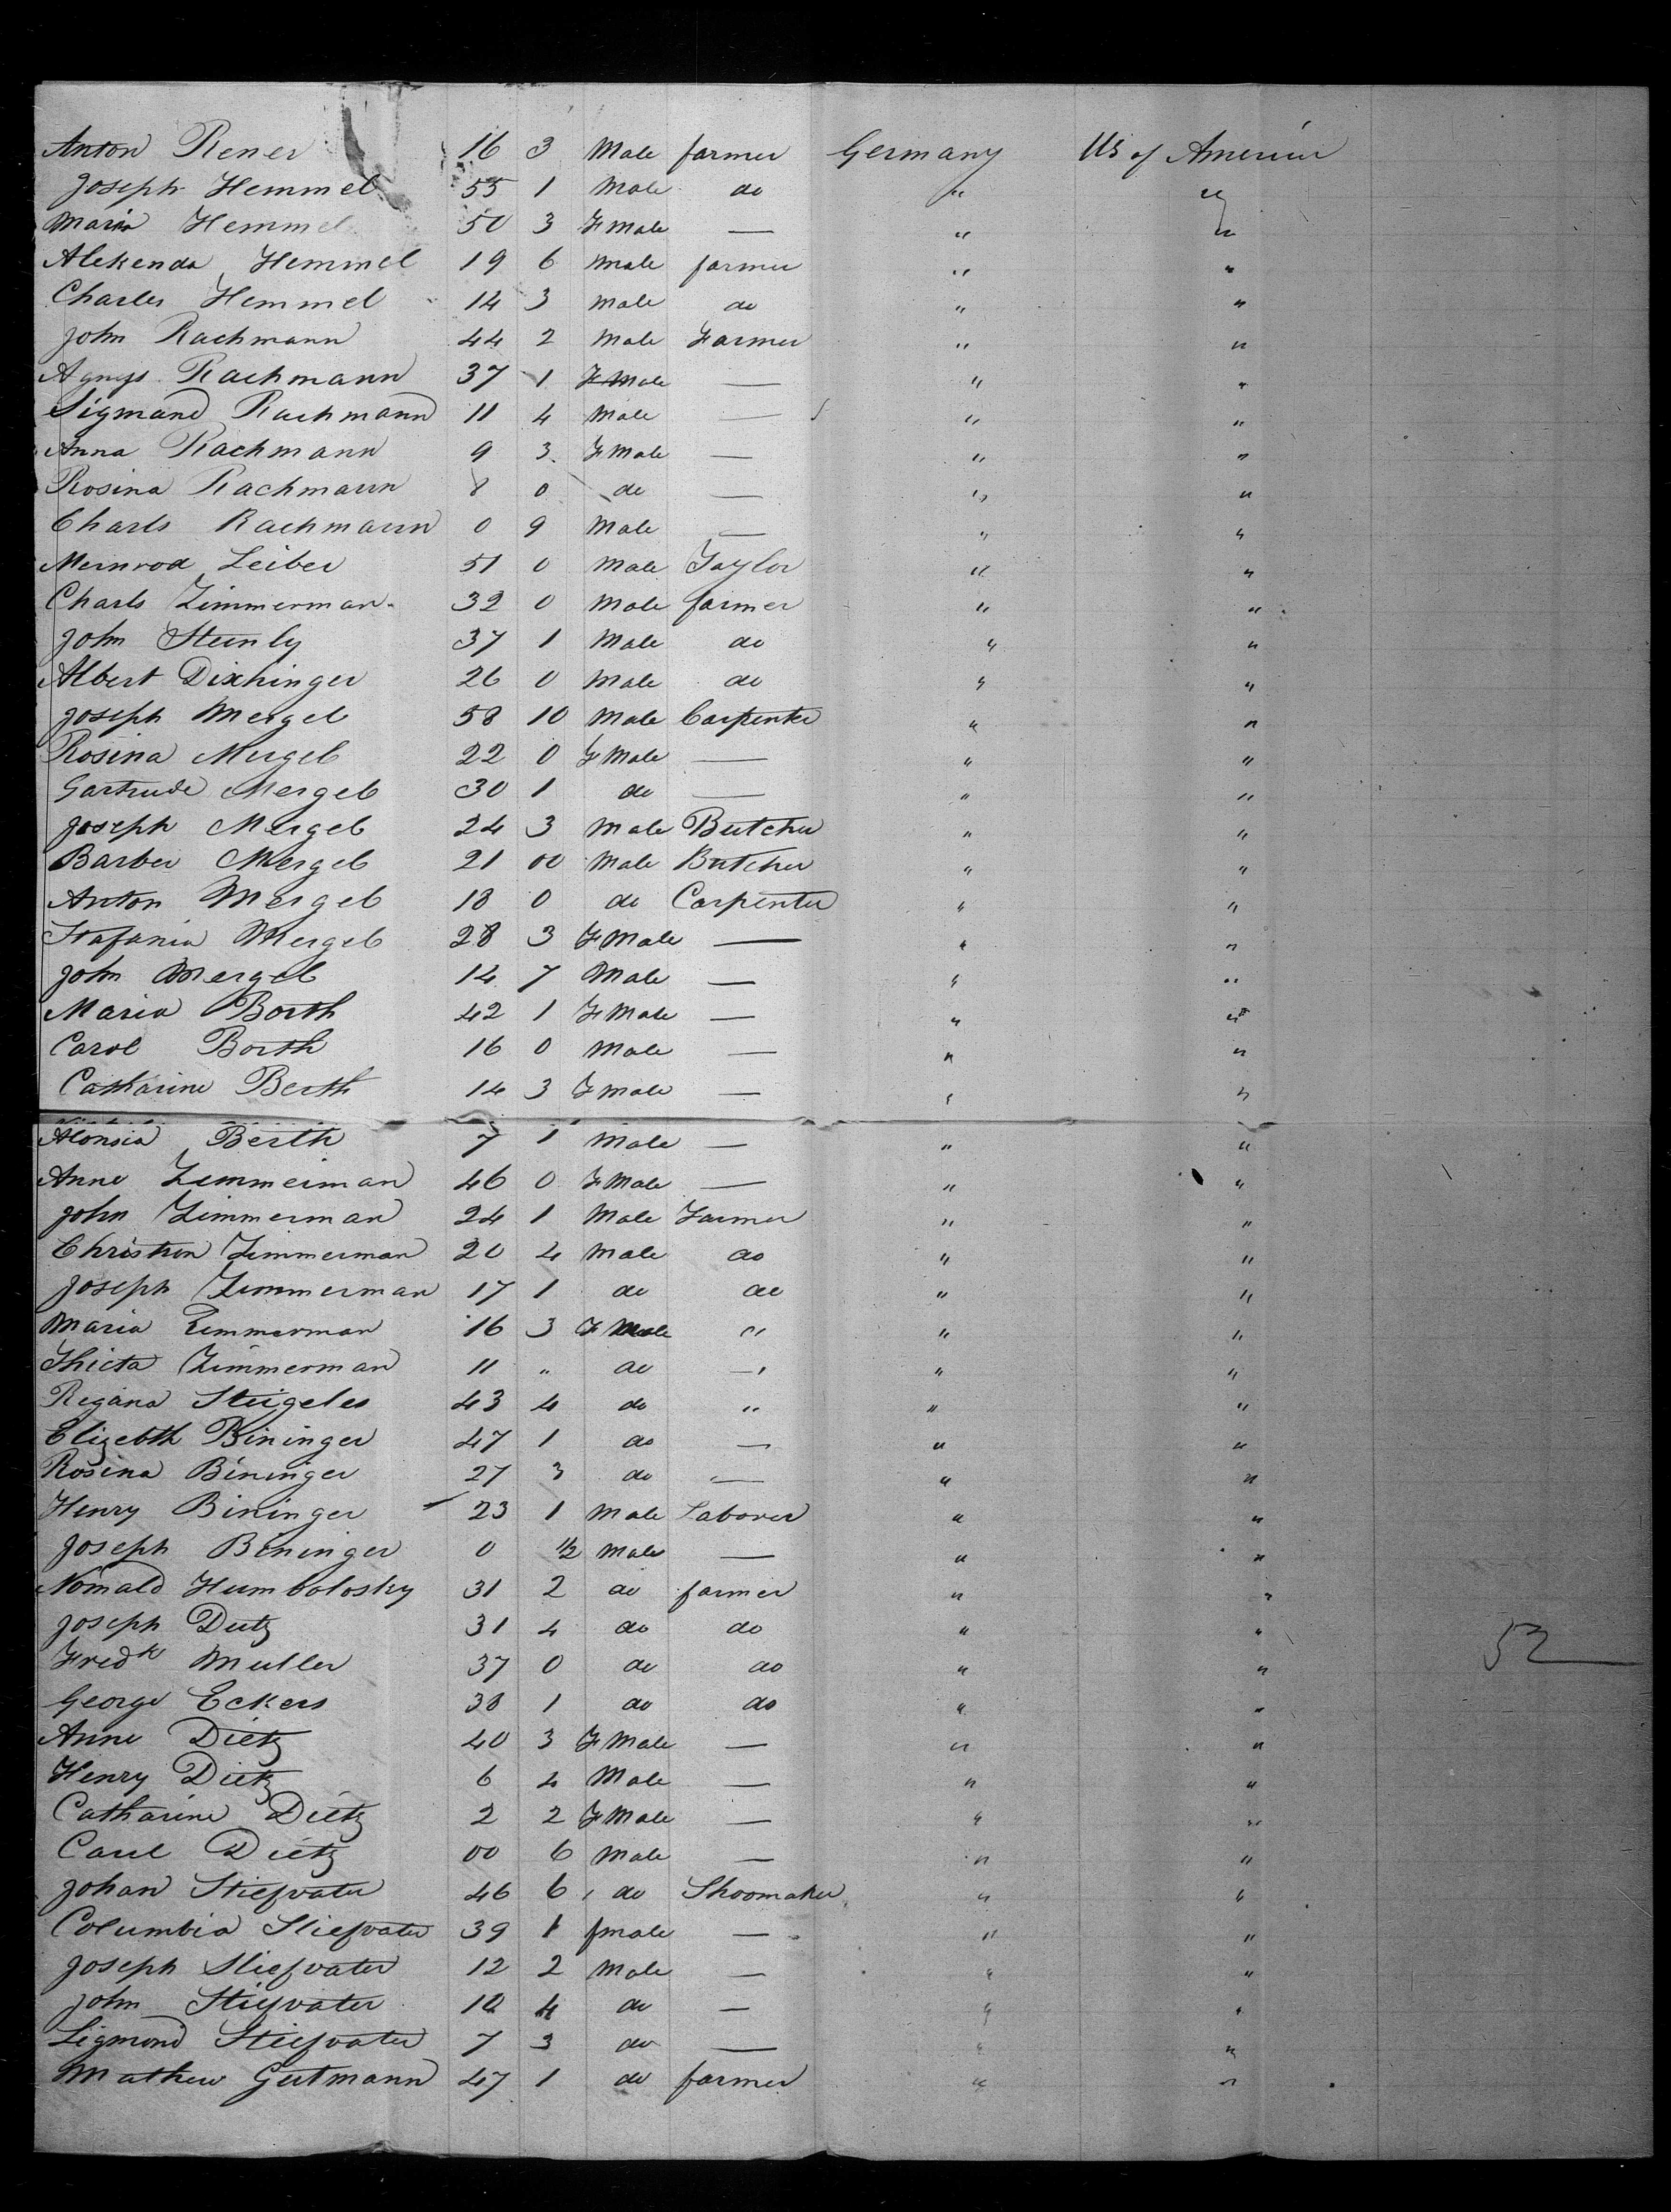 Anton Rener 16 3 Male farmer Germany US of America
Joseph Hemmel 55 1 Male do " "
Maria Hemmel 50 3 Fmale — " "
Alekenda Hemmel 19 6 male farmer " "
Charles Hemmel 14 3 male do " "
John Rachmann 44 2 male Farmer " "
Agnys Rachmann 37 1 FMale — " "
Sigmand Rachmann 11 4 Male — " "
Anna Rachmann 9 3 FMale — " "
Rosina Rachmann 8 0 do — " "
Charls Rachmann 0 9 Male — " "
Meinrod Leiber 51 0 Male Taylor " "
Charls Zimmerman 32 0 Male farmer " "
John Steinly 37 1 Male do " "
Albert Dixhinger 26 0 Male do " "
Joseph Mergel 58 10 Male Carpenter " "
Rosina Mergel 22 0 FMale — " "
Gartrude Mergel 30 1 do — " "
Joseph Mergel 24 3 Male Butcher " "
Barber Mergel 21 00 Male Butcher " "
Anton Mergel 18 0 do Carpenter " "
Stafania Mergel 28 3 FMale — " "
John Mergel 14 7 Male — " "
Maria Borth 42 1 FMale — " "
Carol Borth 16 0 Male — " "
Catharine Berth 14 3 Fmale — " "
Alonsia Berth 7 1 Male — " "
Anne Zimmerman 46 0 FMale — " "
John Zimmerman 24 1 Male Farmer " "
Christian Zimmerman 20 4 Male do " "
Joseph Zimmerman 17 1 do do " "
Maria Zimmerman 16 3 FMale " " "
Thicta Zimmerman 11 " do — " "
Regana Steigeles 43 4 do " " "
Elizebth Bininger 47 1 do — " "
Rosina Bininger 27 3 do — " "
Henry Bininger 23 1 Male Laborer " "
Joseph Bininger 0 1/2 Male — " "
Nomald Humbolosky 31 2 do farmer " "
Joseph Dutz 31 4 do do " "
Fredk Muller 37 0 do do " "
George Eckers 38 1 do do " "
Anne Dietz 40 3 FMale — " "
Henry Dietz 6 4 Male — " "
Catharine Dietz 2 2 FMale — " "
Carl Dietz 00 6 Male — " "
Johan Stiefvater 46 6 do Shoomaker " "
Columbia Stiefvater 39 1 fmale — " "
Joseph Stiefvater 12 2 Male — " "
John Stiefvater 10 4 do — " "
Sigmond Stiefvater 7 3 do — " "
Mathew Gutmann 47 1 do farmer " "
52